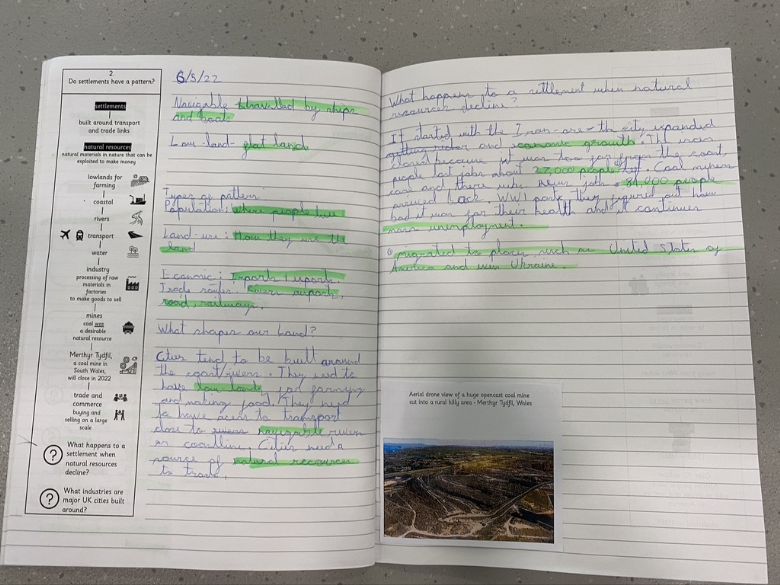 2.
Do settlements have a pattern?
settlements
built around transport
and trade links
natural resources
natural materials in nature that can be
exploited to make money
lowlands for
farming
coastal
rivers
transport
water
industry
processing of raw
materials in
factories
to make goods to sell
mines
coal was
a desirable
natural resource
Merthyr Tydfil,
a coal mine in
South Wales,
will close in 2022
trade and
commerce
buying and
selling on a large
scale
? What happens to a
settlement when
natural resources
decline?
? What industries are
major UK cities built
around?
6/5/22
Navigable travelled by ships
and boats
Low land - flat land
Types of pattern
Population: where people live
Land-use: How they use the
land
Economic: Imports / exports.
Trade routes: Rivers airports,
road, railways.
What shapes our land?
Cities tend to be built around
the coast/rivers. They need to
have low lands for farming
and making food. They need
to have access to transport
close to navigable rivers
or coastline. Cities need a
source of natural resources
to trade.
What happens to a settlement when natural
resources decline?
It started with the Iron-ore - the city expanded
and economic growth. The iron
closed because it was too far from the coast
people lost jobs about 27,000 people left. Coal mines
and there were jobs. 81,000 people
arrived back. WW1 they how
bad it was for their health and it continues
more unemployment.
migrated to places such as United States of
America and Ukraine.
Aerial drone view of a huge opencast coal mine
cut into a rural hilly area - Merthyr Tydfil, Wales